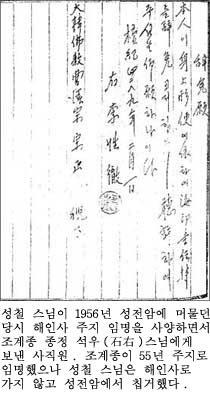 辭免願
本人이 身上形便에依하여 海印寺住持
를 辭免코저 하오니 聽許하여
주심을 仰願하나이다
檀紀四二八九年 二月 日
右 李性徹
大韓佛敎曹溪宗 宗正
성철 스님이 1956년 성전암에 머물던
당시 해인사 주지 임명을 사양하면서
조계종 종정 석우(石右)스님에게
보낸 사직원. 조계종이 55년 주지로
임명했으나 성철 스님은 해인사로
가지 않고 성전암에서 칩거했다.